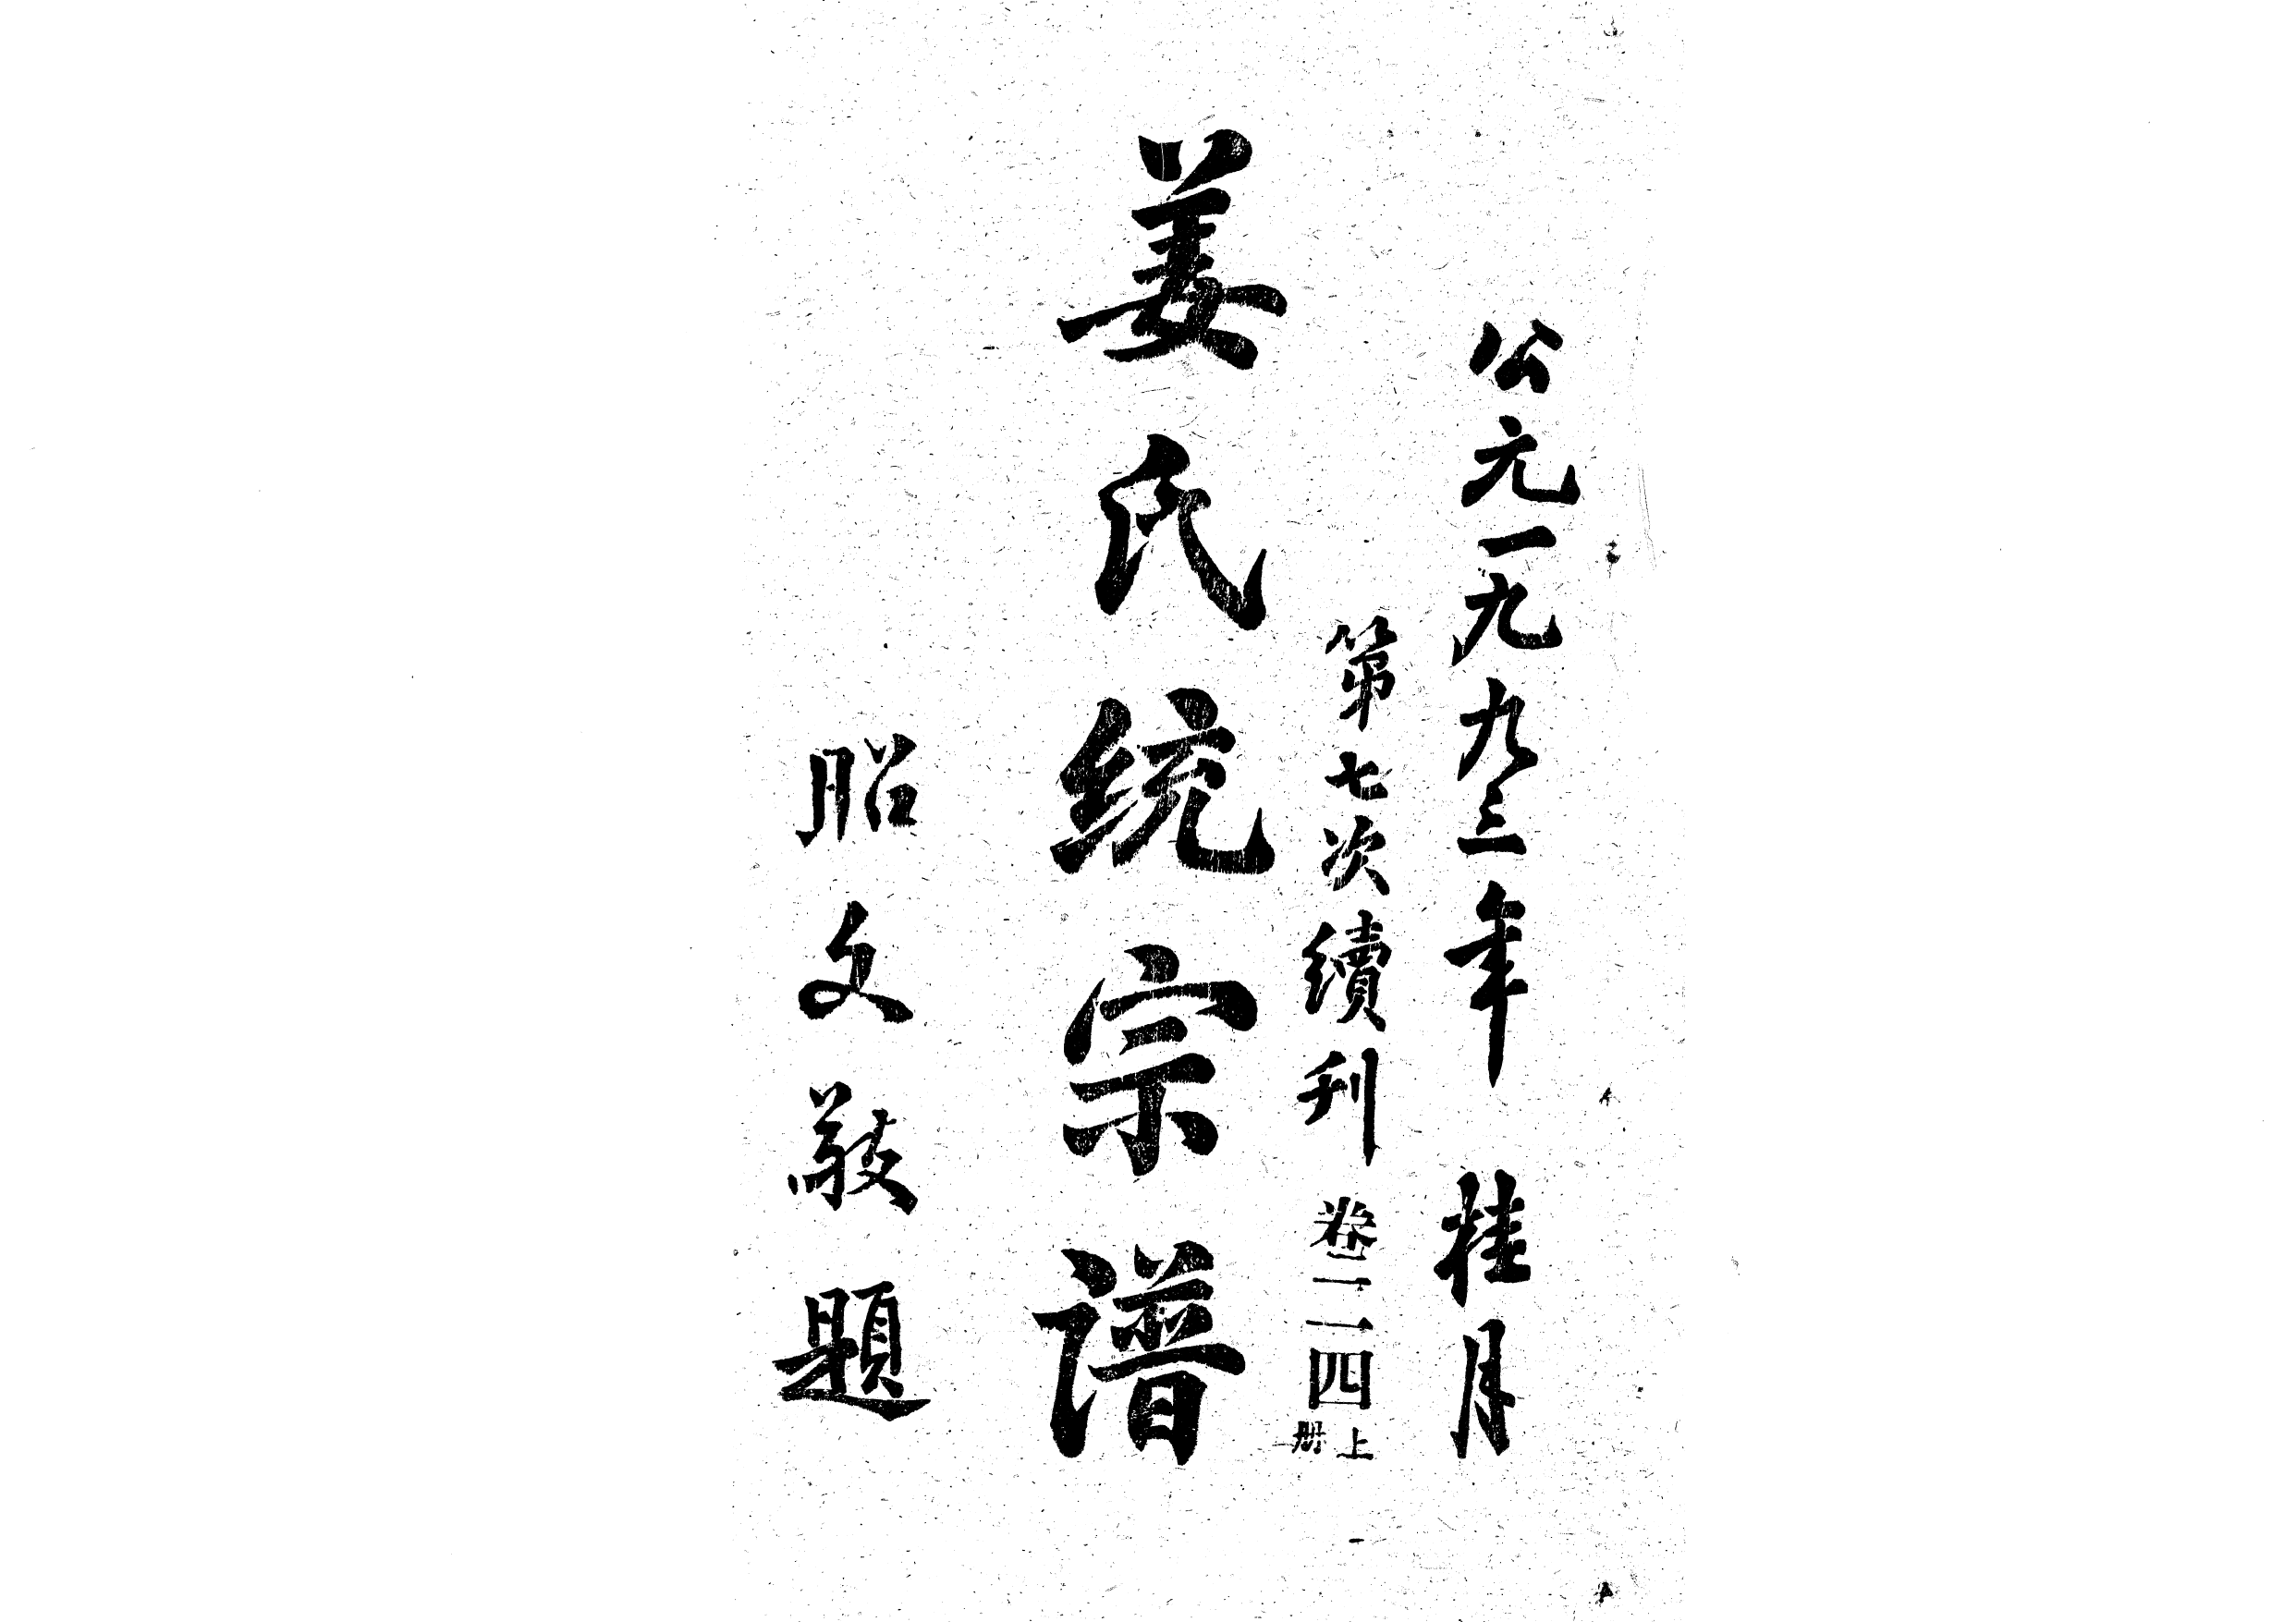 公元一九九三年 桂月
第七次續刊 卷二一四 上册
姜氏统宗谱
昭文敬題